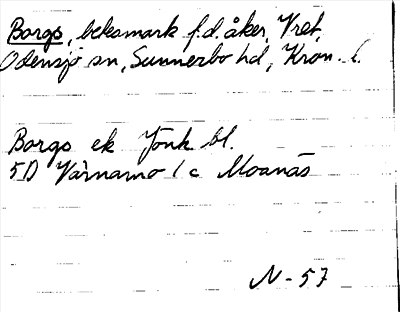 Borgs, betesmark f.d. åker, Vret,
Odensjö sn, Sunnerbo hd, Kron. l.
Borgs ek Jönk bl.
5D Värnamo 1 c Moanäs
N-57